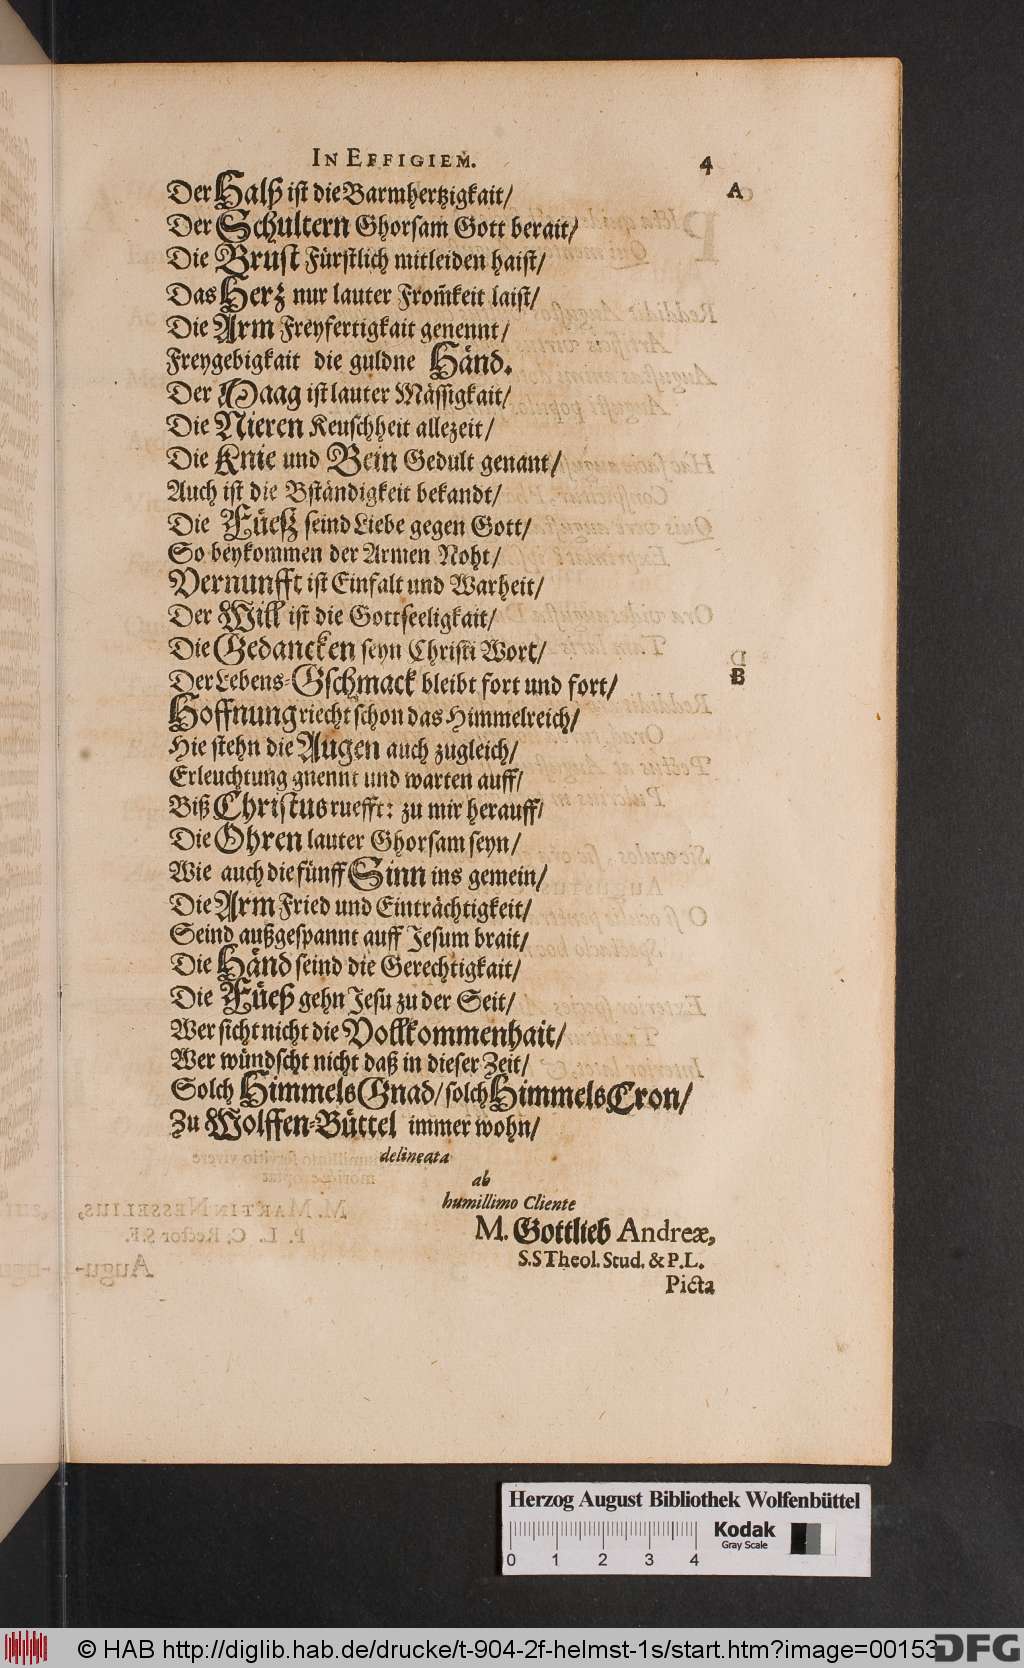 IN EFFIGIEM. 4
Der Halß ist die Barmhertzigkait/ A
Der Schultern Ghorsam Gott berait/
Die Brust Fürstlich mitleiden haist/
Das Herz nur lauter From̃keit laist/
Die Arm Freyfertigkait genennt/
Freygebigkait die guldne Händ.
Der Maag ist lauter Mässigkait/
Die Nieren Keuschheit allezeit/
Die Knie und Bein Gedult genant/
Auch ist die Bständigkeit bekandt/
Die Füeß seind Liebe gegen Gott/
So beykommen der Armen Noht/
Vernunfft ist Einfalt und Warheit/
Der Will ist die Gottseeligkait/
Die Gedancken seyn Christi Wort/
Der Lebens-Gschmack bleibt fort und fort/ B
Hoffnung riecht schon das Himmelreich/
Hie stehn die Augen auch zugleich/
Erleuchtung gnennt und warten auff/
Biß Christus ruefft: zu mir herauff/
Die Ohren lauter Ghorsam seyn/
Wie auch die fünff Sinn ins gemein/
Die Arm Fried und Einträchtigkeit/
Seind außgespannt auff Jesum brait/
Die Händ seind die Gerechtigkait/
Die Füeß gehn Jesu zu der Seit/
Wer sicht nicht die Vollkommenhait/
Wer wündscht nicht daß in dieser Zeit/
Solch Himmels Gnad/ solch Himmels Cron/
Zu Wolffen-Büttel immer wohn/
delineata
ab
humillimo Cliente
M. Gottlieb Andreæ,
S.S Theol. Stud. & P. L.
Picta
Herzog August Bibliothek Wolfenbüttel
Kodak
Gray Scale
0 1 2 3 4
© HAB http://diglib.hab.de/drucke/t-904-2f-helmst-1s/start.htm?image=00153
DFG